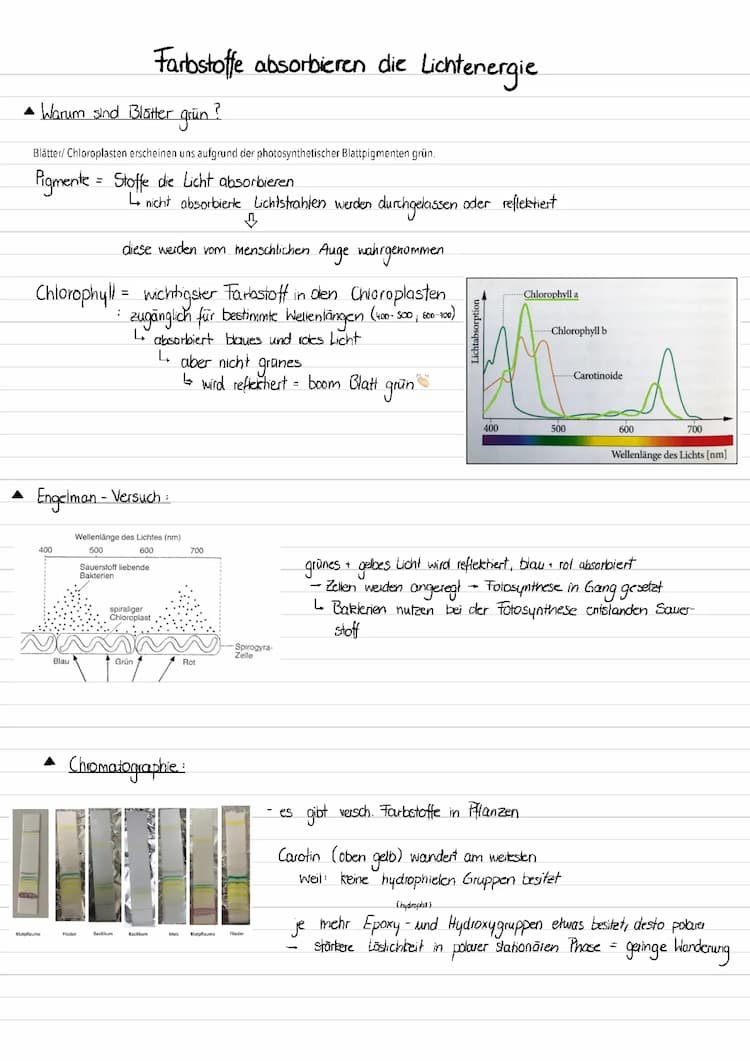 Farbstoffe absorbieren die Lichtenergie
▲ Warum sind Blätter grün?
Blätter/ Chloroplasten erscheinen uns aufgrund der photosynthetischer Blattpigmenten grün.
Pigmente = Stoffe die Licht absorbieren
↳ nicht absorbierte Lichtstrahlen werden durchgelassen oder reflektiert
⇩
diese werden vom menschlichen Auge wahrgenommen
Chlorophyll = wichtigster Farbstoff in den Chloroplasten
: zugänglich für bestimmte Wellenlängen (400-500, 600-700)
↳ absorbiert blaues und rotes Licht
↳ aber nicht grünes
↳ wird reflektiert = boom Blatt grün 👏🏻
Lichtabsorption
Chlorophyll a
Chlorophyll b
Carotinoide
400 500 600 700
Wellenlänge des Lichts [nm]
▲ Engelman - Versuch:
Wellenlänge des Lichtes (nm)
400 500 600 700
Sauerstoff liebende
Bakterien
spiraliger
Chloroplast
Spirogyra-
Zelle
Blau Grün Rot
grünes + gelbes Licht wird reflektiert, blau + rot absorbiert
– Zellen werden angeregt → Fotosynthese in Gang gesetzt
↳ Bakterien nutzen bei der Fotosynthese entstanden Sauer-
stoff
▲ Chromatographie:
Blutpflaume Flieder Basilikum Basilikum Mais Blutpflaume Flieder
- es gibt versch. Farbstoffe in Pflanzen
Carotin (oben gelb) wandert am weitesten
weil: keine hydrophielen Gruppen besitzt
(hydrophil)
je mehr Epoxy - und Hydroxygruppen etwas besitzt, desto polarer
– stärkere Löslichkeit in polarer stationären Phase = geringe Wanderung